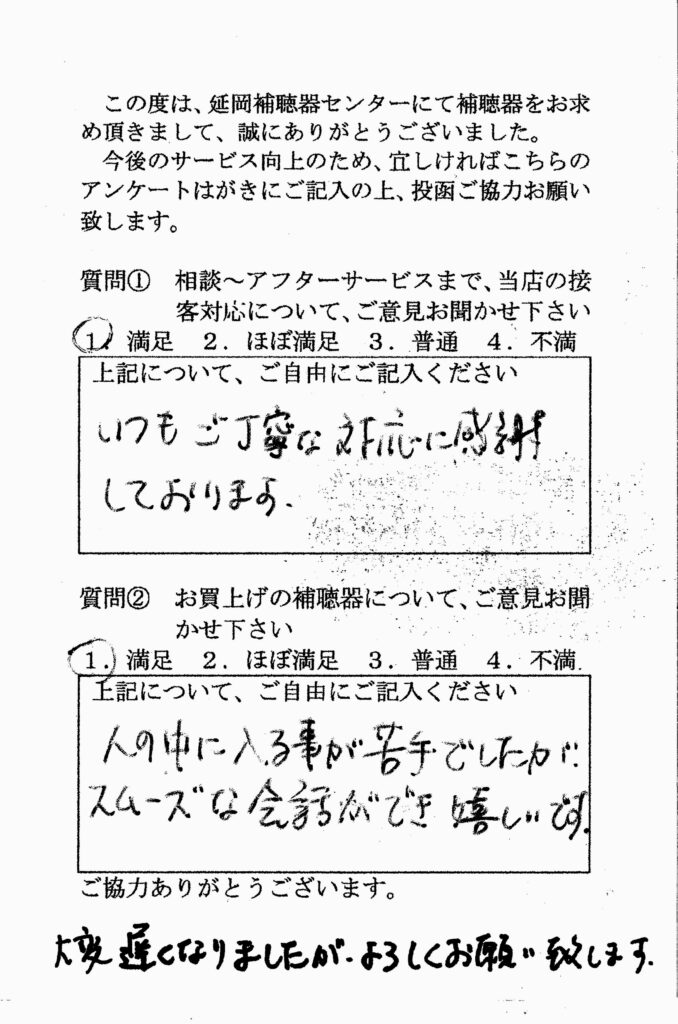 この度は、延岡補聴器センターにて補聴器をお求
め頂きまして、誠にありがとうございました。
今後のサービス向上のため、宜しければこちらの
アンケートはがきにご記入の上、投函ご協力お願い
致します。
質問① 相談～アフターサービスまで、当店の接
客対応について、ご意見お聞かせ下さい
1．満足 2．ほぼ満足 3．普通 4．不満
上記について、ご自由にご記入ください
いつもご丁寧な対応に感謝
しております.
質問② お買上げの補聴器について、ご意見お聞
かせ下さい
1．満足 2．ほぼ満足 3．普通 4．不満
上記について、ご自由にご記入ください
人の中に入る事が苦手でしたが.
スムーズな会話ができ嬉しいです.
ご協力ありがとうございます。
大変遅くなりましたが.よろしくお願い致します.